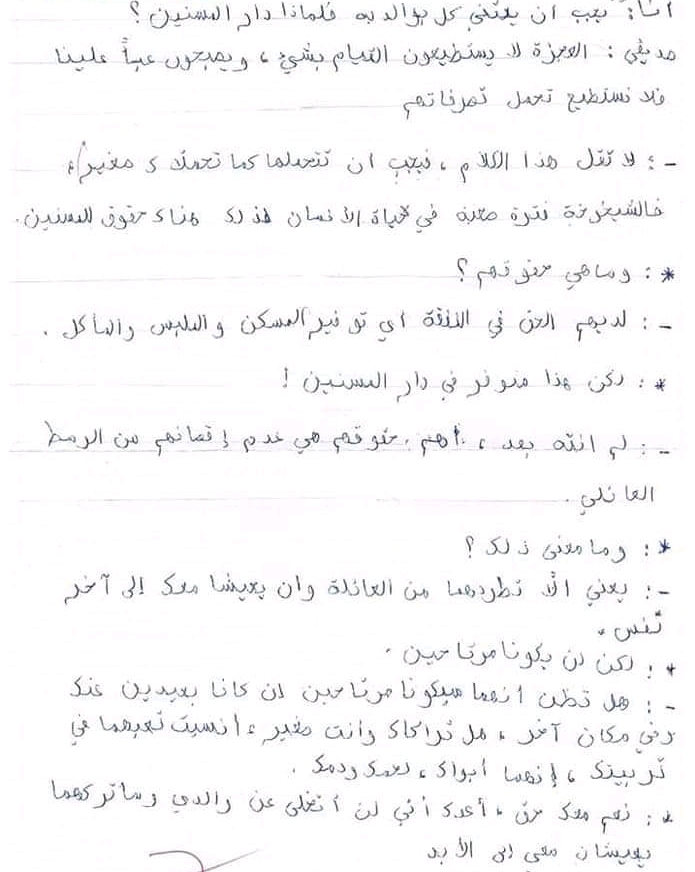 أنا: يجب ان يعتني كل بوالديه فلماذا دار المسنين؟
صديقي: العجزة لا يستطيعون القيام بشيء، ويصبحون عبأ علينا
فلا نستطيع تحمل تصرفاتهم
-: لا تقل هذا الكلام، فيجب ان تتحملهما كما تحملاك صغيرا،
فالشيخوخة فترة صعبة في حياة الأنسان لذلك هناك حقوق للمسنين.
*: وماهي حقوقهم؟
-: لديهم الحق في النفقة اي توفير المسكن والملبس والمأكل.
*: لكن هذا متوفر في دار المسنين!
-: لم انته بعد، أهم حقوقهم هي عدم إقصائهم من الوسط
العائلي.
*: وما معنى ذلك؟
-: يعني ألا تطردهما من العائلة وان يعيشا معك إلى آخر
نفس.
*: لكن لن يكونا مرتاحين.
-: هل تظن أنهما سيكونا مرتاحين ان كانا بعيدين عنك
وفي مكان آخر، هل تراكاك وانت صغير، أنسيت تعبهما في
تربيتك، إنهما أبواك، لحمك ودمك.
*: نعم معك حق، أعدك أني لن أتخلى عن والدي وسأتركهما
يعيشان معي إلى الأبد